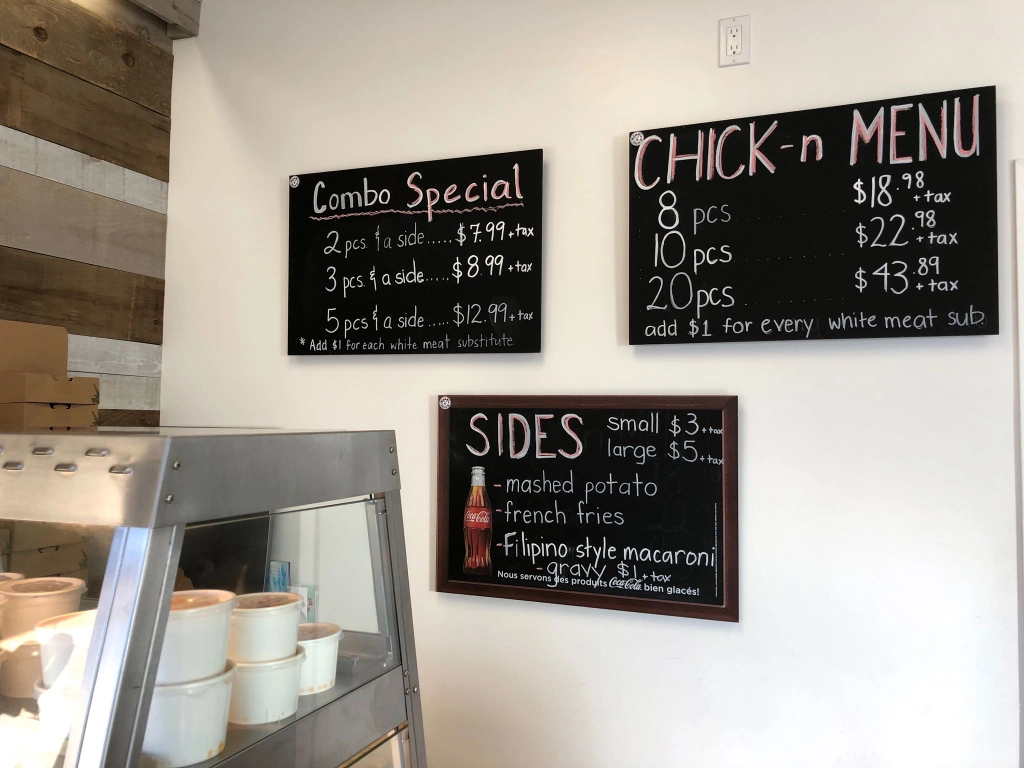 Combo Special
2 pcs. & a side ..... $7.99 + tax
3 pcs. & a side ..... $8.99 + tax
5 pcs & a side ..... $12.99 + tax
* Add $1 for each white meat substitute
CHICK-n MENU
8 pcs ............ $18.98 + tax
10 pcs $22.98 + tax
20 pcs ............ $43.89 + tax
add $1 for every white meat sub.
SIDES small $3 + tax
large $5 + tax
- mashed potato
- french fries
- Filipino style macaroni
- gravy $1 + tax
Coca-Cola
Nous servons des produits Coca-Cola bien glacés!